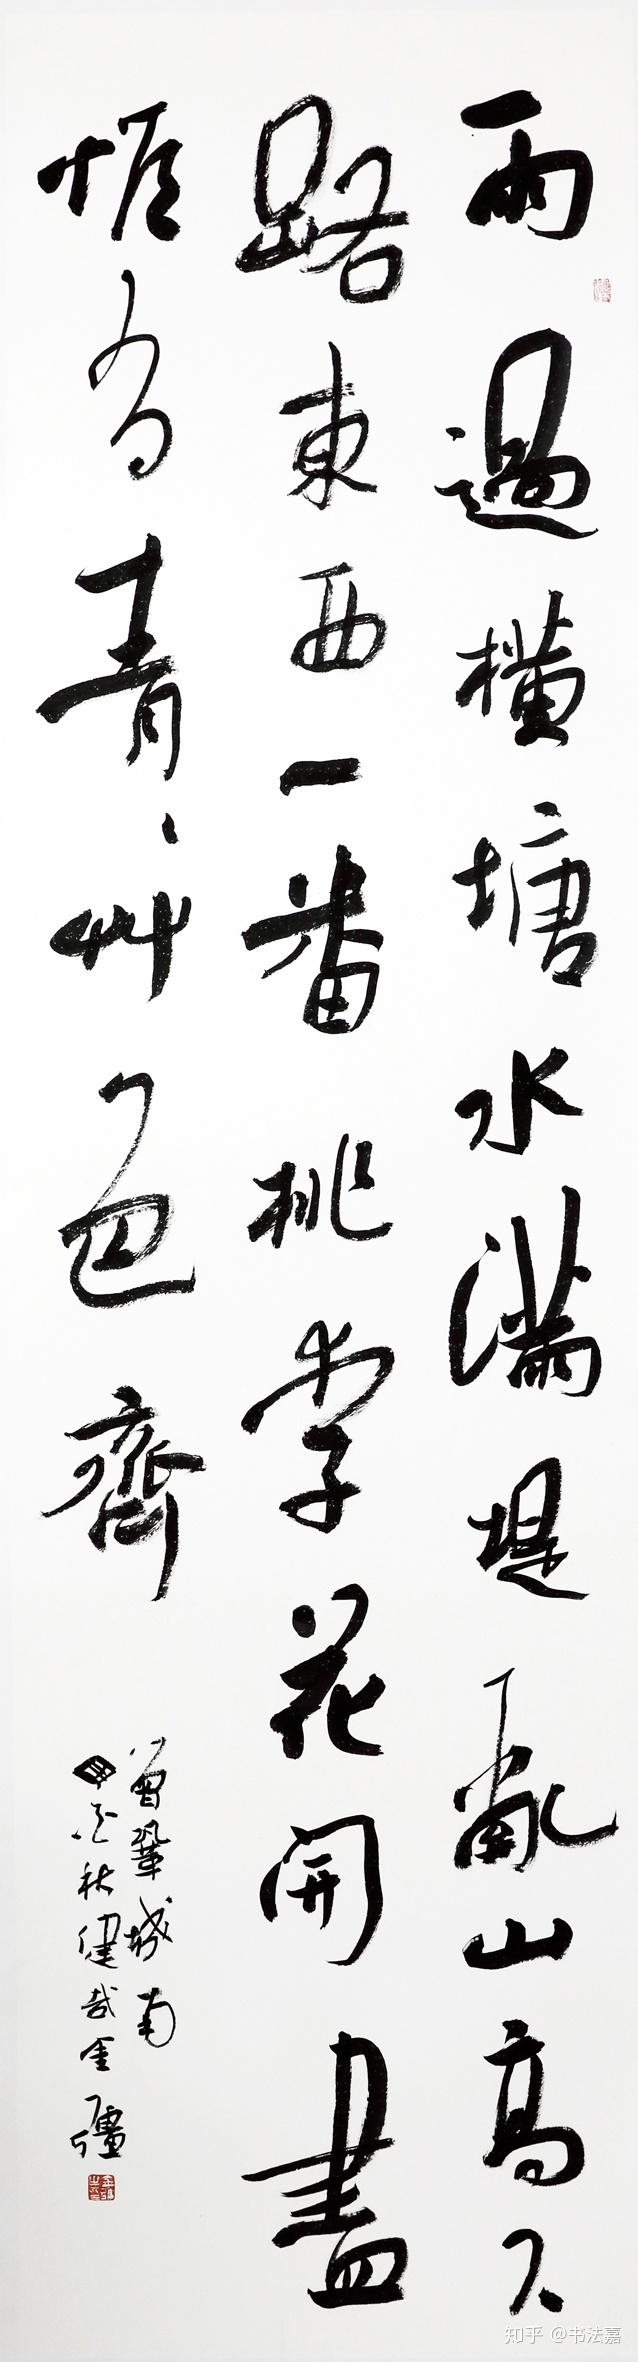 雨過橫塘水滿堤亂山高下
路東西一番桃李花開盡
惟有青〻艸色齊
曾鞏城南
秋健哉金
知乎 @书法嘉